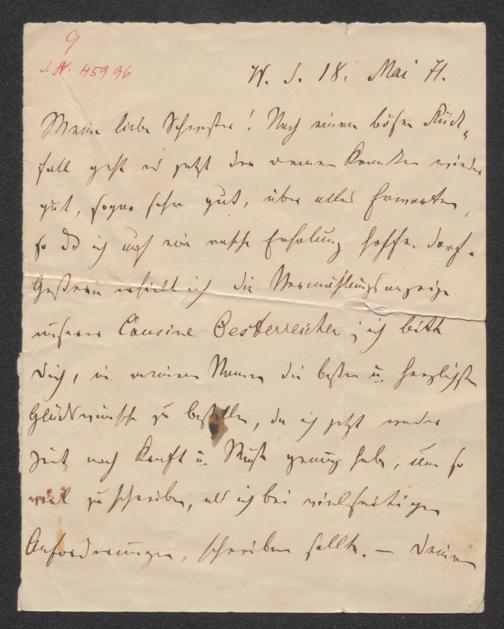 9
J. N. 45996
W. d. 18. Mai 71.
Meine liebe Schwester! Nach einem bösen Rück-
fall geht es jetzt der armen Kranken wieder
gut, sogar sehr gut, über alles Erwarten,
so daß ich auf eine rasche Erholung hoffen darf.
Gestern erhielt ich die Vermählungsanzeige
unserer Cousine Oesterreicher; ich bitte
Dich, in meinem Namen die besten u. herzlichsten
Glückwünsche zu bestellen, da ich jetzt weder
Zeit noch Kraft u. Muße genug habe, um so
viel zu schreiben, als ich bei vielseitigen
Anforderungen, schreiben sollte. — Deinen